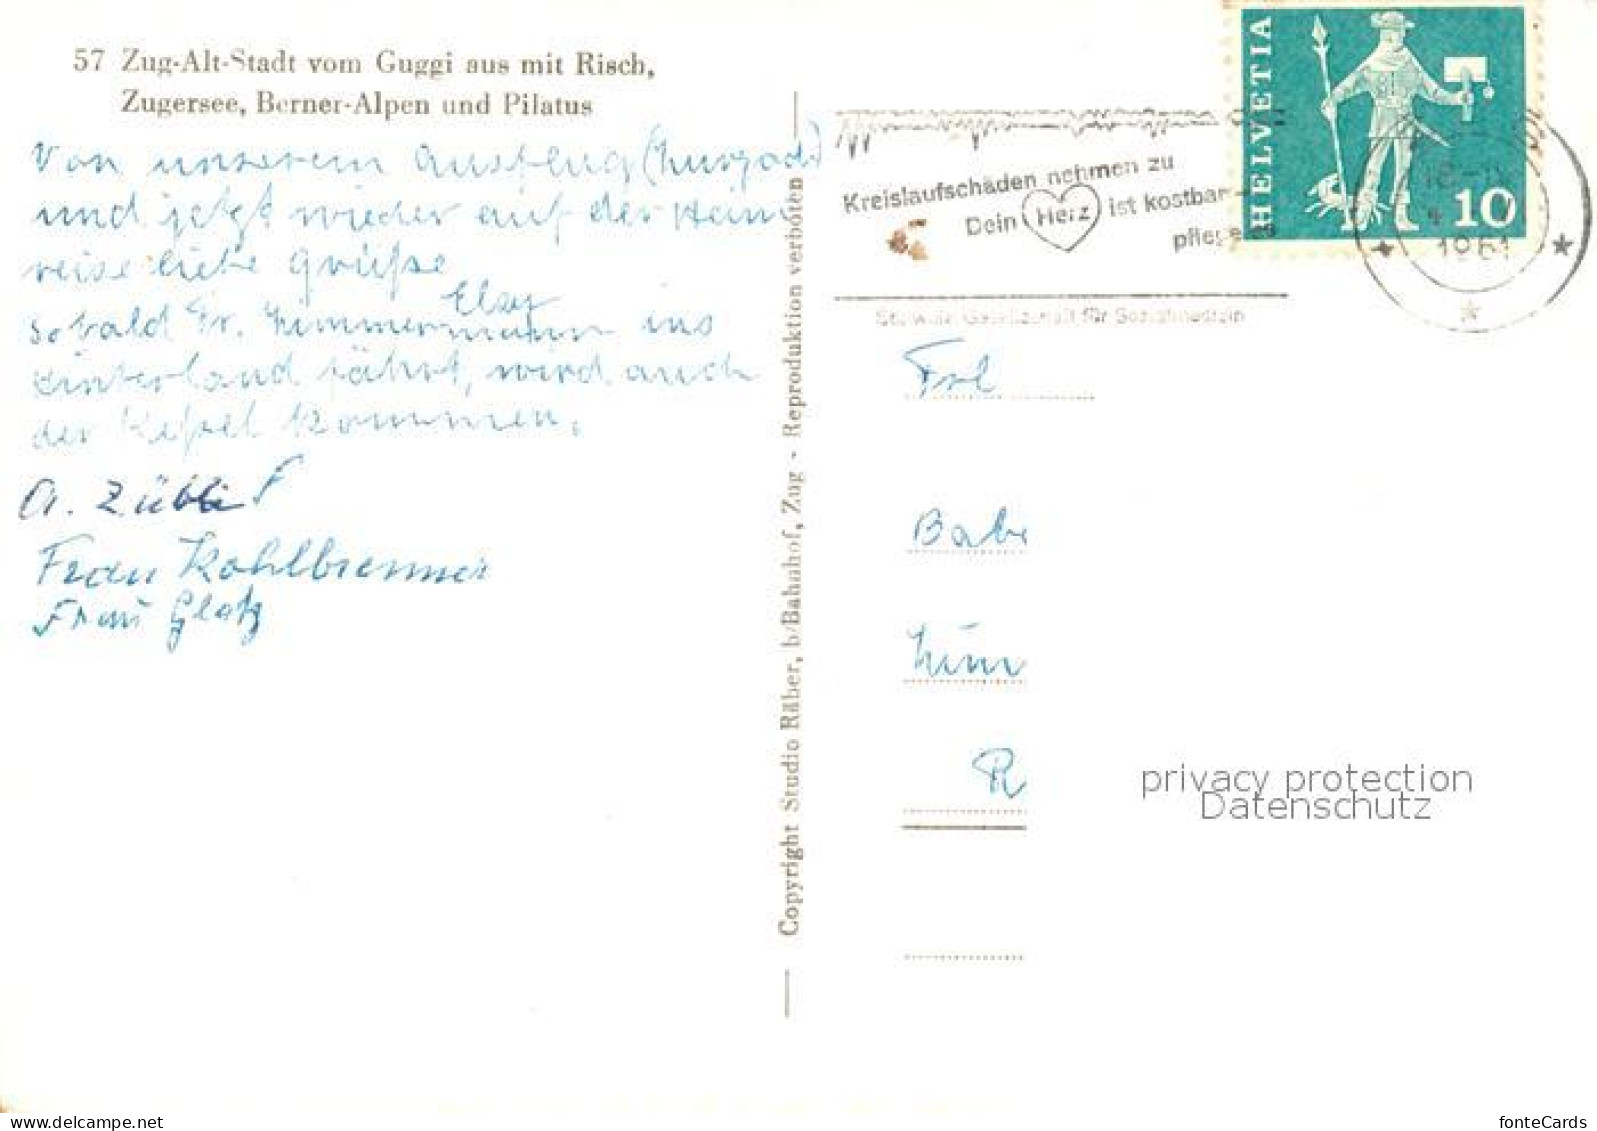 57 Zug-Alt-Stadt vom Guggi aus mit Risch,
Zugersee, Berner-Alpen und Pilatus
Von unserem Ausflug
und jetzt wieder auf der Heim
reise liebe Grüße
Elsy
sobald Fr. Zimmermann ins
Hinterland fährt, wird auch
der Keßel kommen.
A. Zübli F
Frau Kohlbrenner
Frau Glatz
Copyright Studio Räber, b/Bahnhof, Zug - Reproduktion verboten
Kreislaufschäden nehmen zu
Dein Herz ist kostbar
pflege
für Sozialmedizin
HELVETIA
10
1961
Frl
Babe
R
privacy protection
Datenschutz
www.delcampe.net
fonteCards